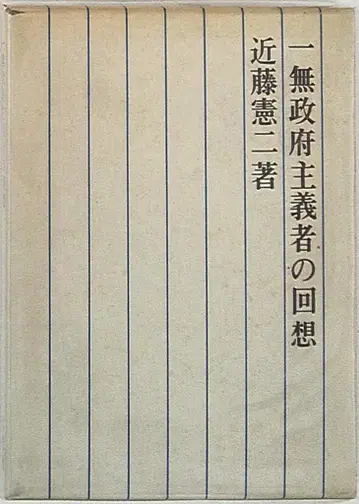 一無政府主義者の回想
近藤憲二著